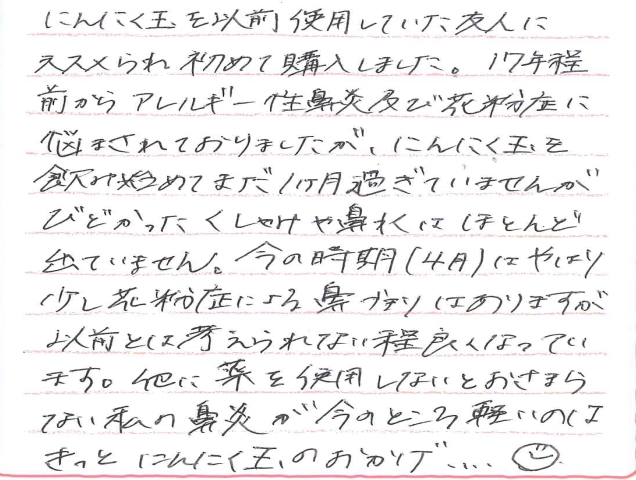 にんにく玉を以前使用していた友人に
ススメられ初めて購入しました。17年程
前からアレルギー性鼻炎及び花粉症に
悩まされておりましたが、にんにく玉を
飲み始めてまだ1ヶ月過ぎていませんが
ひどかったくしゃみや鼻水はほとんど
出ていません。今の時期(4月)はやはり
少し花粉症による鼻づまりはありますが
以前とは考えられない程良くなってい
ます。他に薬を使用しないとおさまら
ない私の鼻炎が今のところ軽いのは
きっとにんにく玉のおかげ....☺